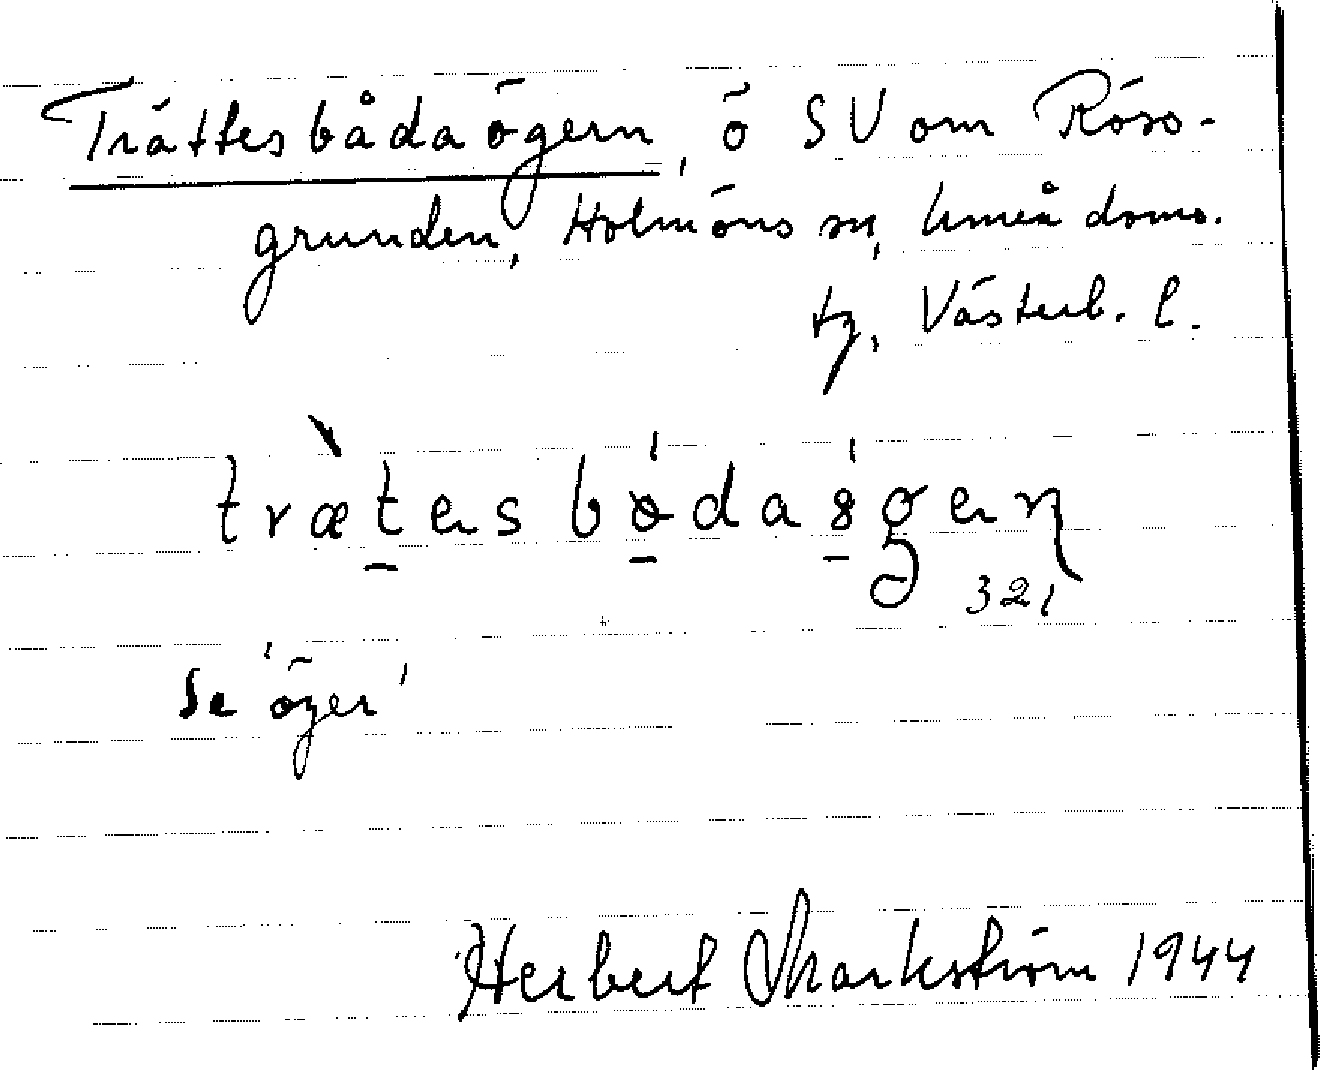 Trättesbådaögern, ö SV om Röso-
grunden, Holmöns sn, Umeå doms.
tg, Västerb. l.
trætesbådaögern
321
Se 'öger'
Herbert Markström 1944